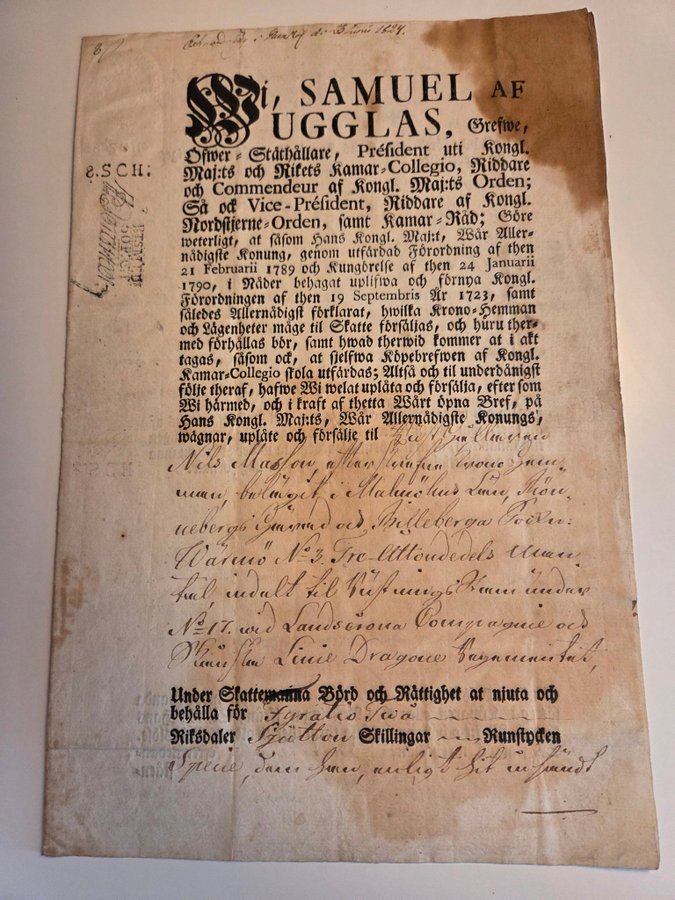 87
1824.
Wi, SAMUEL AF
UGGLAS, Grefwe,
Öfwer-Ståthållare, Président uti Kongl.
Maj:ts och Rikets Kamar-Collegio, Riddare
och Commendeur af Kongl. Maj:ts Orden;
Så ock Vice-Président, Riddare af Kongl.
Nordstjerne-Orden, samt Kamar-Råd; Göre
weterligt, at såsom Hans Kongl. Maj:t, Wår Aller-
nådigste Konung, genom utfärdad Förordning af then
21 Februarii 1789 och Kungörelse af then 24 Januarii
1790, i Nåder behagat uplifwa och förnya Kongl.
Förordningen af then 19 Septembris År 1723, samt
således Allernådigst förklarat, hwilka Krono-Hemman
och Lägenheter måge til Skatte försäljas, och huru ther-
med förhållas bör, samt hwad therwid kommer at i akt
tagas, såsom ock, at sjelfwa Köpebrefwen af Kongl.
Kamar-Collegio skola utfärdas; Altså och til underdånigst
följe theraf, hafwe Wi welat uplåta och försälja, efter som
Wi härmed, och i kraft af thetta Wårt öpna Bref, på
Hans Kongl. Maj:ts, Wår Allernådigste Konungs,
wägnar, uplåte och försälje til
Nils Masson, efterskrefne Krono Hem-
man, beläget i Malmöhus Län, Rön-
nebergs Härad och Billeberga Sockn:
Wärmö No 3. Tre Åttondedels Man-
tal, indelt til Rustnings Stam under
No 17. wid Landscrona Compagnie och
Skånska Linie Dragone Regementet,
Under Skattemanna Börd och Rättighet at njuta och
behålla för Fyratio Två
Riksdaler Sjutton Skillingar Runstycken
Specie, dem han, enligt hit insändt
8.SCH: